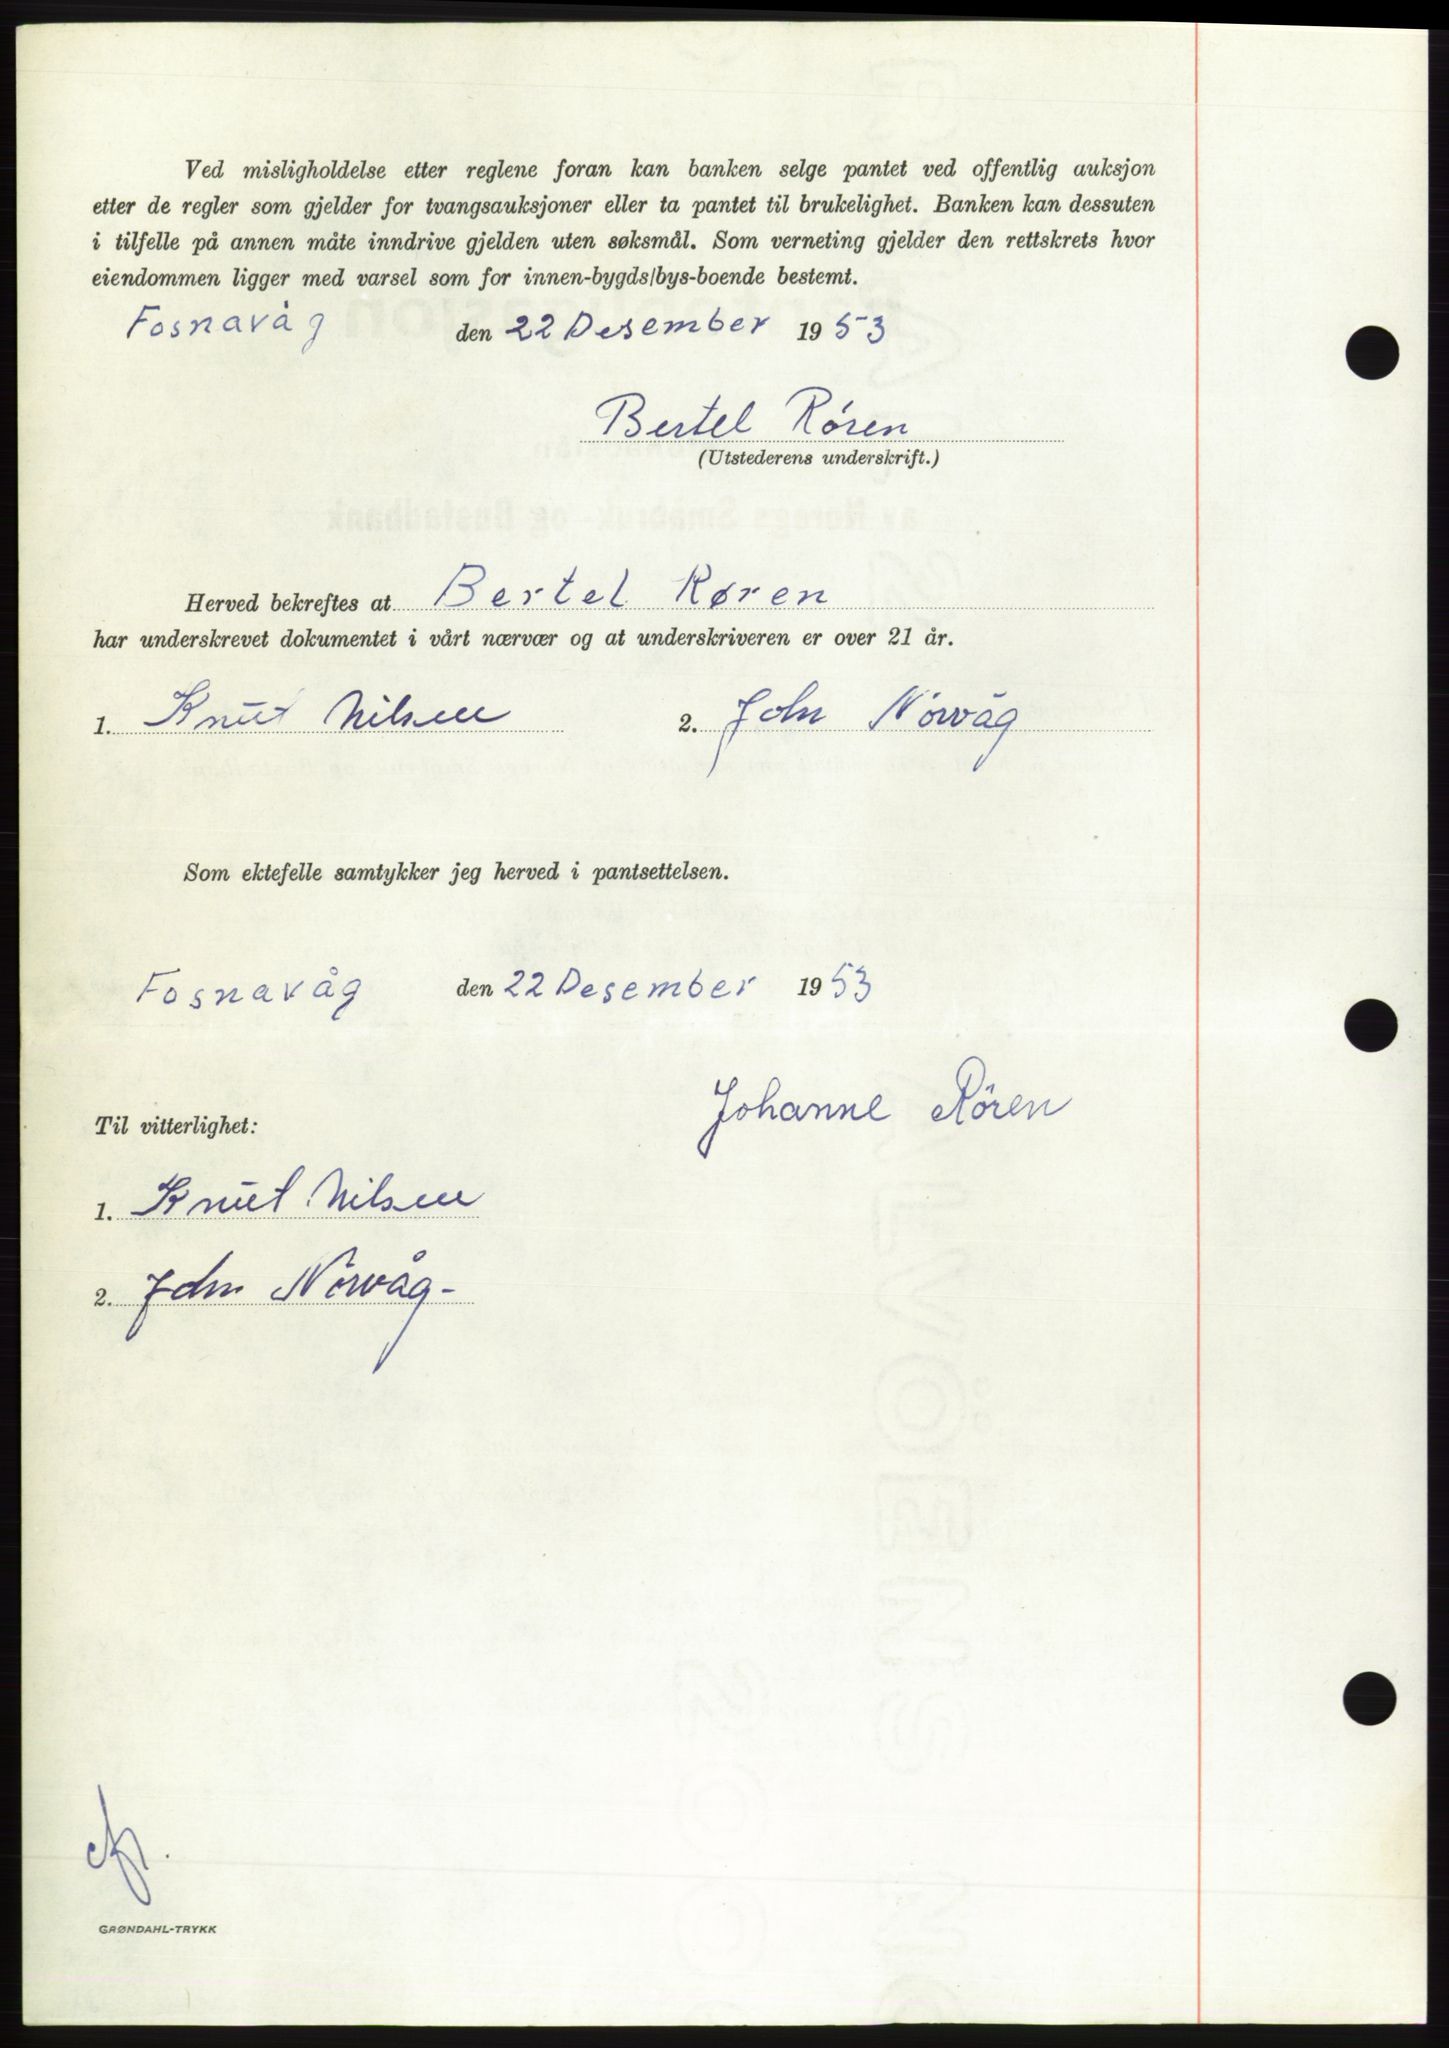 Ved misligholdelse etter reglene foran kan banken selge pantet ved offentlig auksjon
etter de regler som gjelder for tvangsauksjoner eller ta pantet til brukelighet. Banken kan dessuten
i tilfelle på annen måte inndrive gjelden uten søksmål. Som verneting gjelder den rettskrets hvor
eiendommen ligger med varsel som for innen-bygds/bys-boende bestemt.
Fosnavåg den 22 Desember 1953
Bertel Røren
(Utstederens underskrift.)
Herved bekreftes at Bertel Røren
har underskrevet dokumentet i vårt nærvær og at underskriveren er over 21 år.
1. Knut Nilsen 2. John Nörvåg
Som ektefelle samtykker jeg herved i pantsettelsen.
Fosnavåg den 22 Desember 1953
Johanne Rören
Til vitterlighet:
1. Knut Nilsen
2. John Nörvåg-
GRØNDAHL-TRYKK